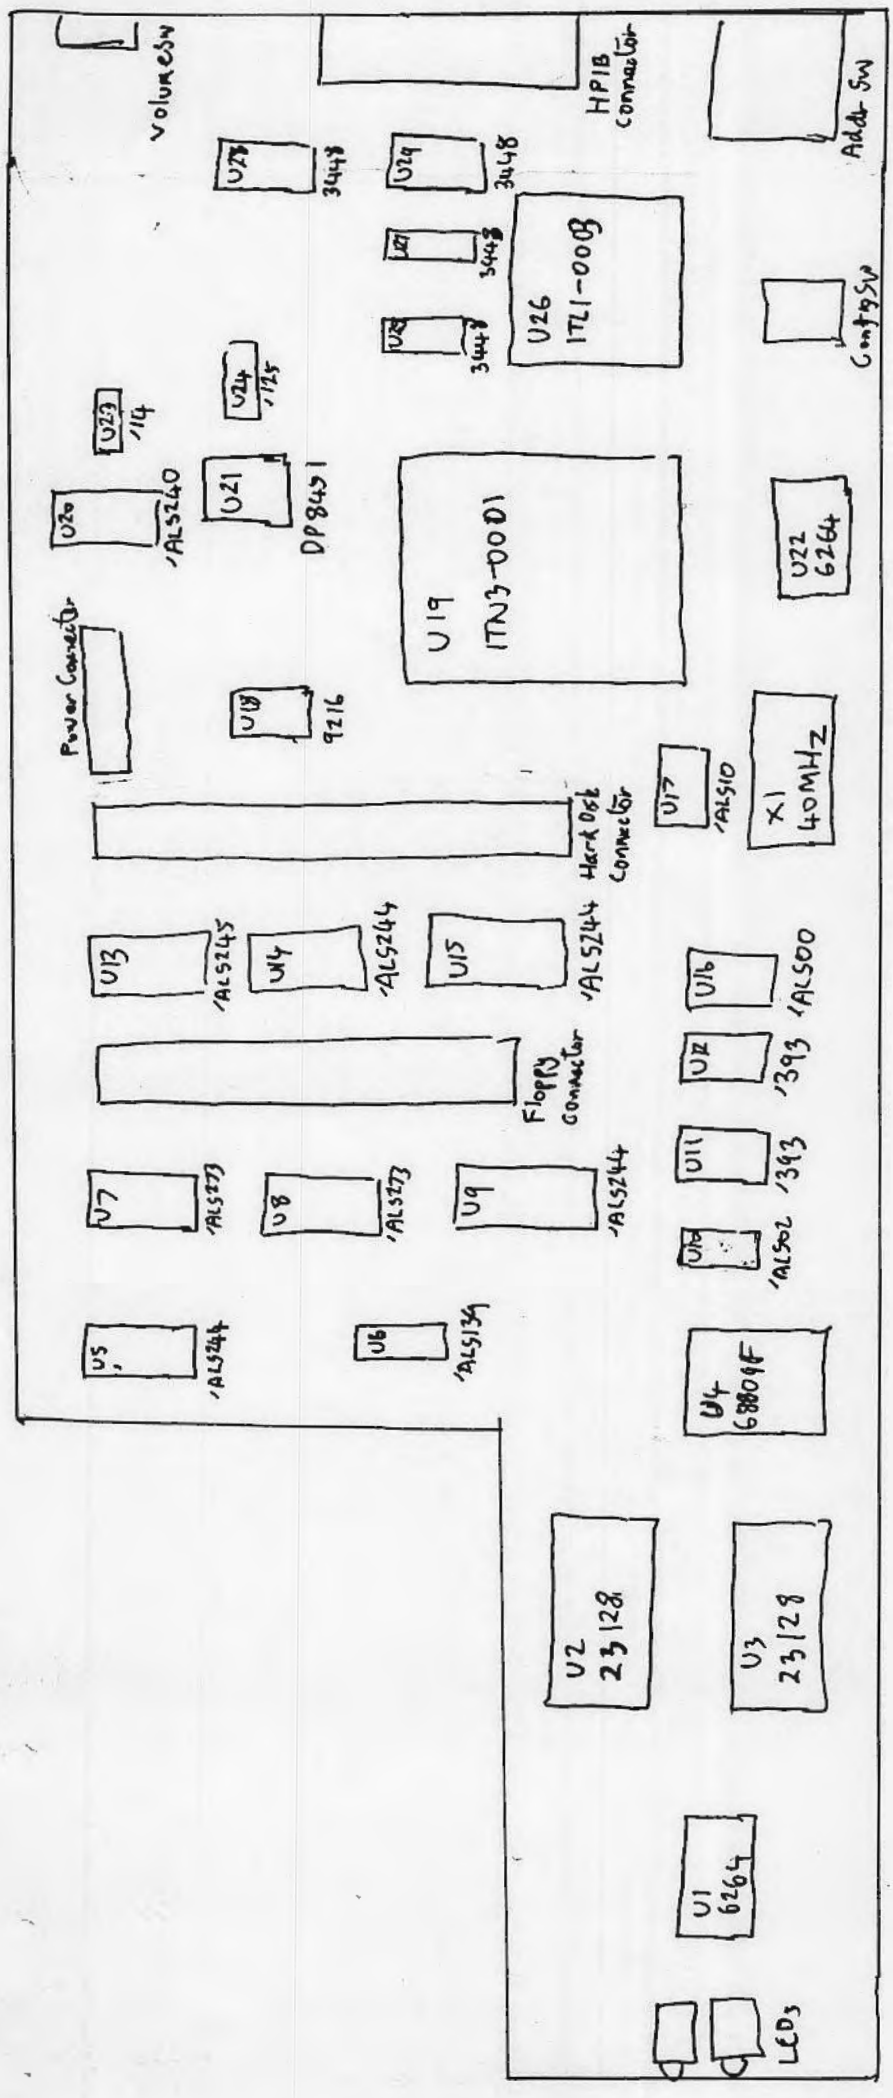 Volume SW
HPIB
Connector
Addr SW
U28
3448
U29
3448
U27
3448
U25
3448
U26
1TL1-0003
Config SW
U23
'14
U24
'125
U20
'ALS240
U21
DP8451
U19
1TN3-0001
U22
6264
Power Connector
U18
9216
Hard Disk
Connector
U17
'ALS10
X1
40MHz
U13
'ALS245
U14
'ALS244
U15
'ALS244
U16
'ALS00
Floppy
Connector
U12
'393
U7
'ALS273
U8
'ALS273
U9
'ALS244
U11
'393
U10
'ALS02
U5
'ALS244
U6
'ALS139
U4
68B09E
U2
23128
U3
23128
U1
6264
LEDs